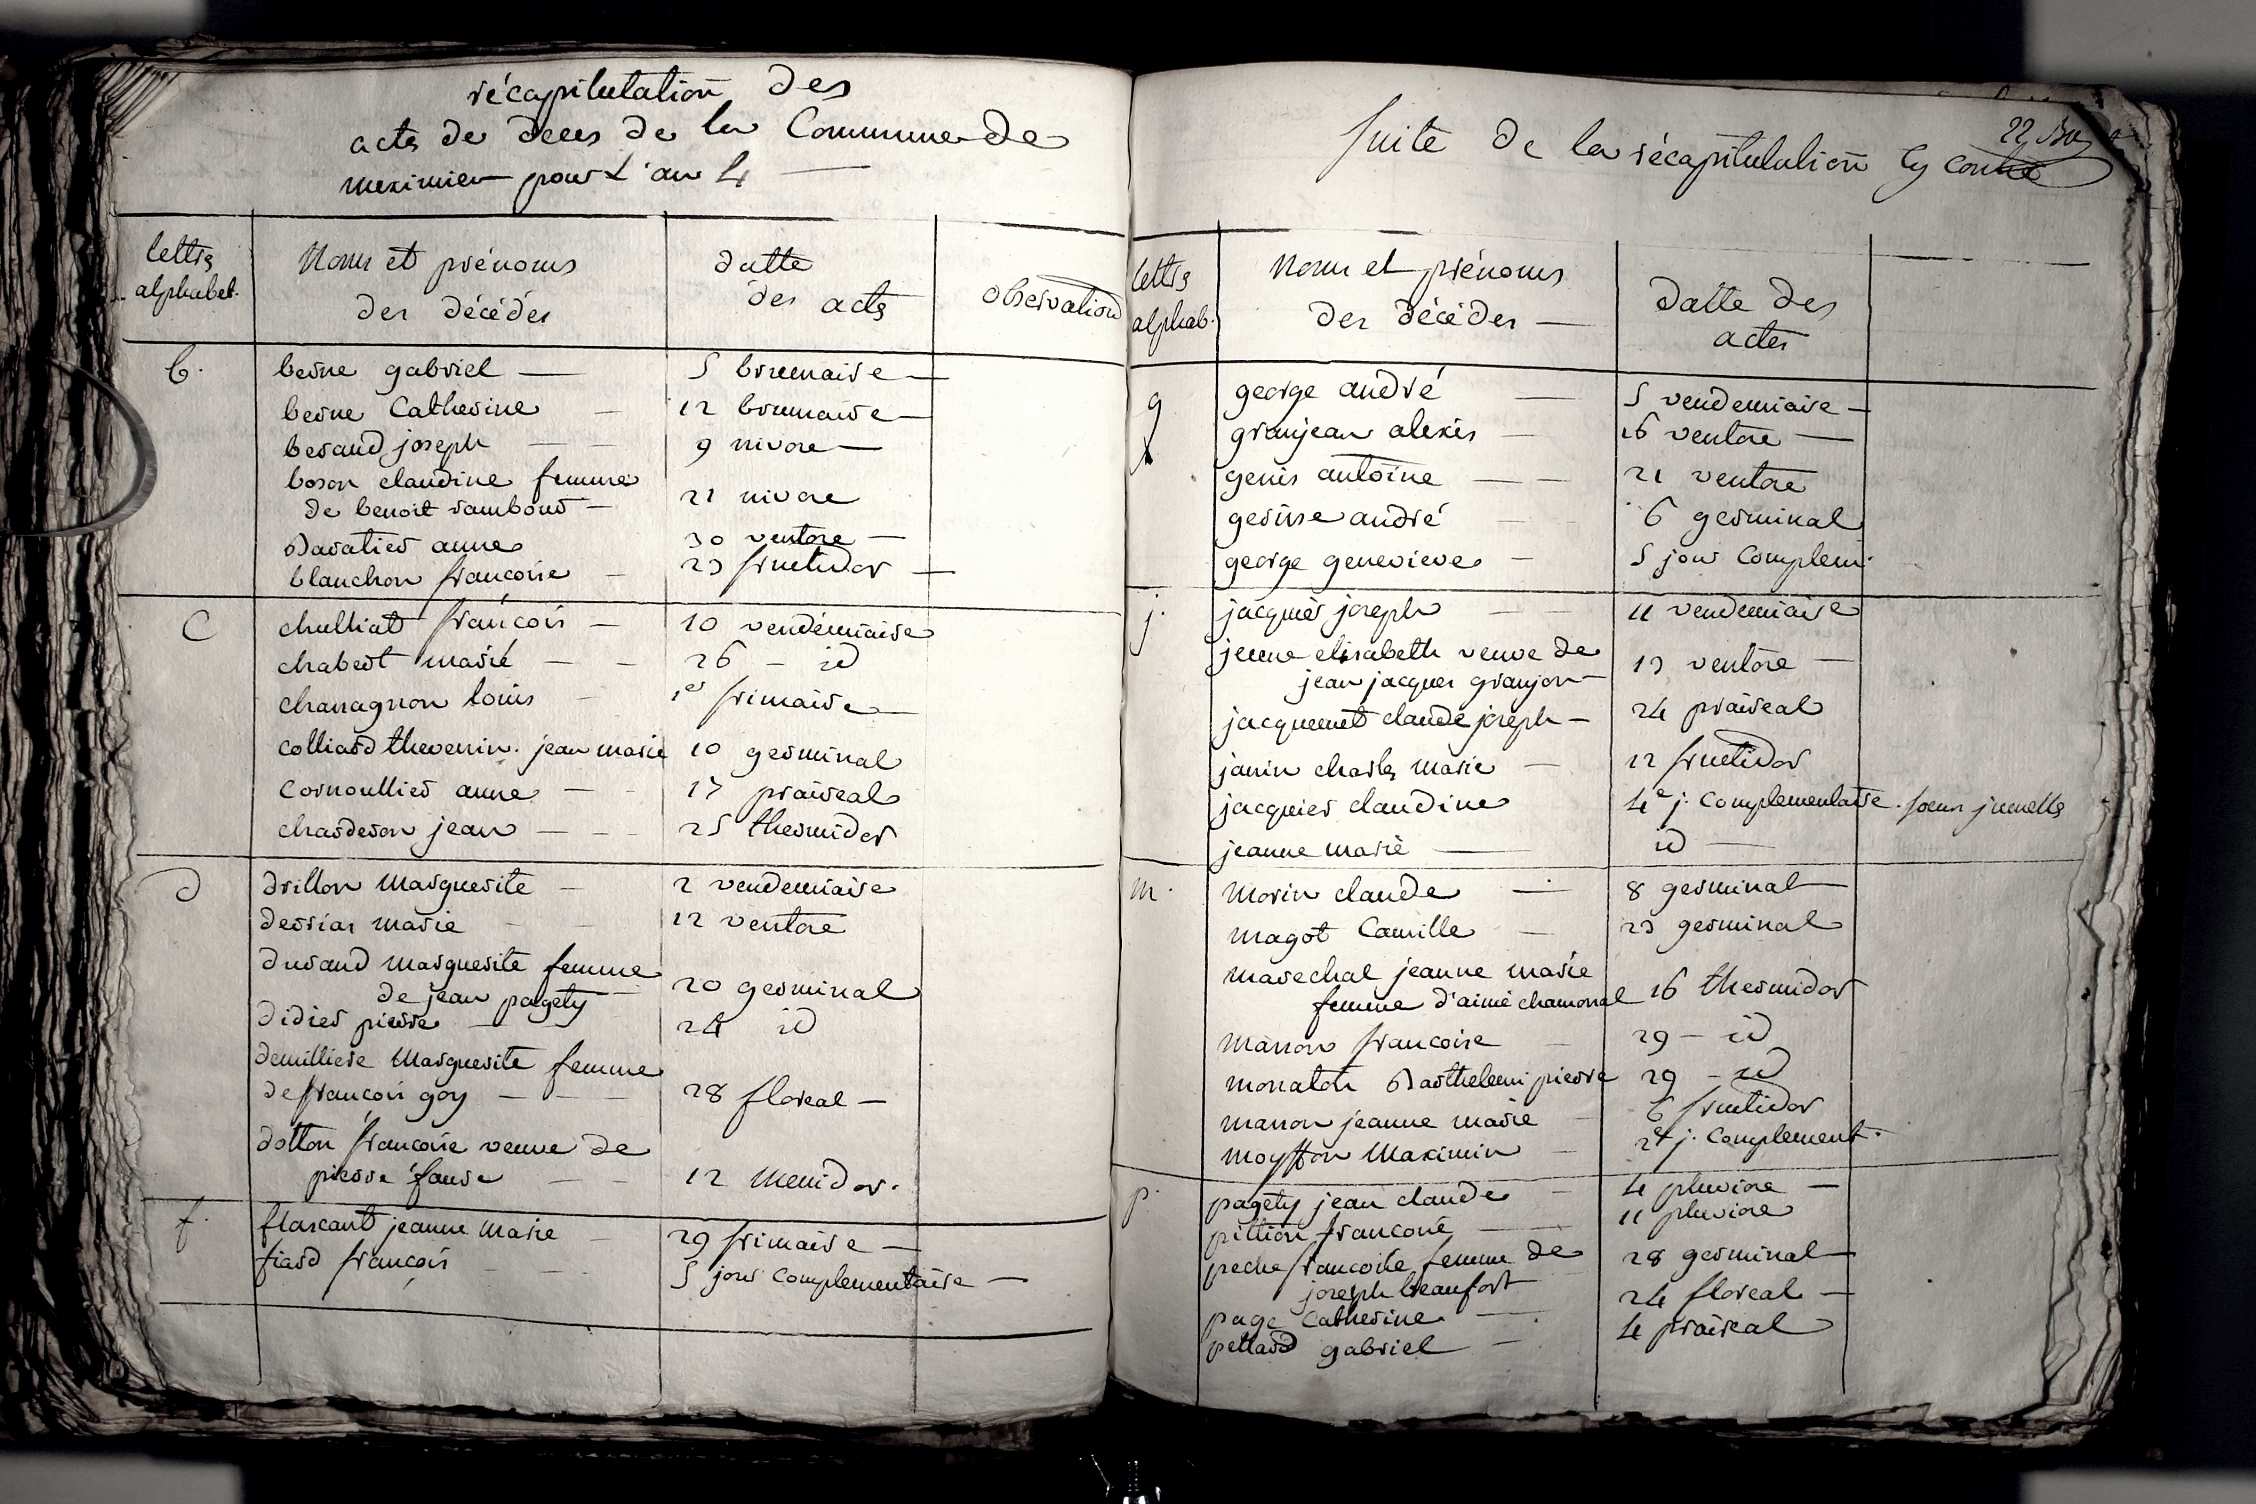 récapitulation des
actes de deces de la Commune de
meximieu pour L'an 4
lettres
alphabet.
Noms et prénoms
des décédés
datte
des actes
observations
b.
berne gabriel — 5 brumaire —
berne Catherine — 12 brumaire —
beraud joseph — — 9 nivose —
boson claudine femme
de benoit rambour — 21 nivose
Baratier anne 30 ventose —
blanchon francoise — 23 fructidor —
C
chulliat françois — 10 vendémiaire
chabert marie — — 26 — id
chanagnon louis — 1er frimaire —
colliard thevenin. jean marie 10 germinal
Cornoullier anne — — 17 praireal
charderon jean — — — 25 thermidor
d
drillon Marguerite — 2 vendemiaire
derrias marie — — 12 ventose
durand marguerite femme
de jean pagety — 20 germinal
didier pierre — — 24 id
demilliere Marguerite femme
de françois goy — — — 28 floreal —
dotton francoise veuve de
pierre faure — — 12 messidor.
f.
flascant jeanne marie — 29 frimaire —
fiard françois — — 5 jour complementaire —
22 Bis
suite de la récapitulation Cy contre
lettres
alphab.
Noms et prénoms
des décédés —
datte des
actes
g
george andré — 5 vendemiaire —
granjean alexis — 16 ventose —
genis antoine — — 21 ventose
gerinse andré — — 6 germinal
george genevieve — 5 jour Complem.
j.
jacquier joseph — — 11 vendemiaire
jeune elisabeth veuve de
jean jacques granjon — 13 ventose —
jacquemet claude joseph — 24 praireal
janin charles marie — 12 fructidor
jacquier claudine 4e j. complementaire. soeurs jumelles
jeanne marie — id —
m.
morin claude — 8 germinal —
magot Camille — 23 germinal
marechal jeanne marie
femme d'aimé chamonal 16 thermidor
manon francoise — 29 — id
monaton Barthelemi pierre 29 — id
manon jeanne marie — 6 fructidor
moyffon Maximin — 2e j. complement.
p.
pagety jean claude — 4 pluviose —
pittion francone — 11 pluviose
peche francoise femme de 28 germinal —
joseph beaufort
page Catherine — 24 floreal —
pettard gabriel — 4 praireal